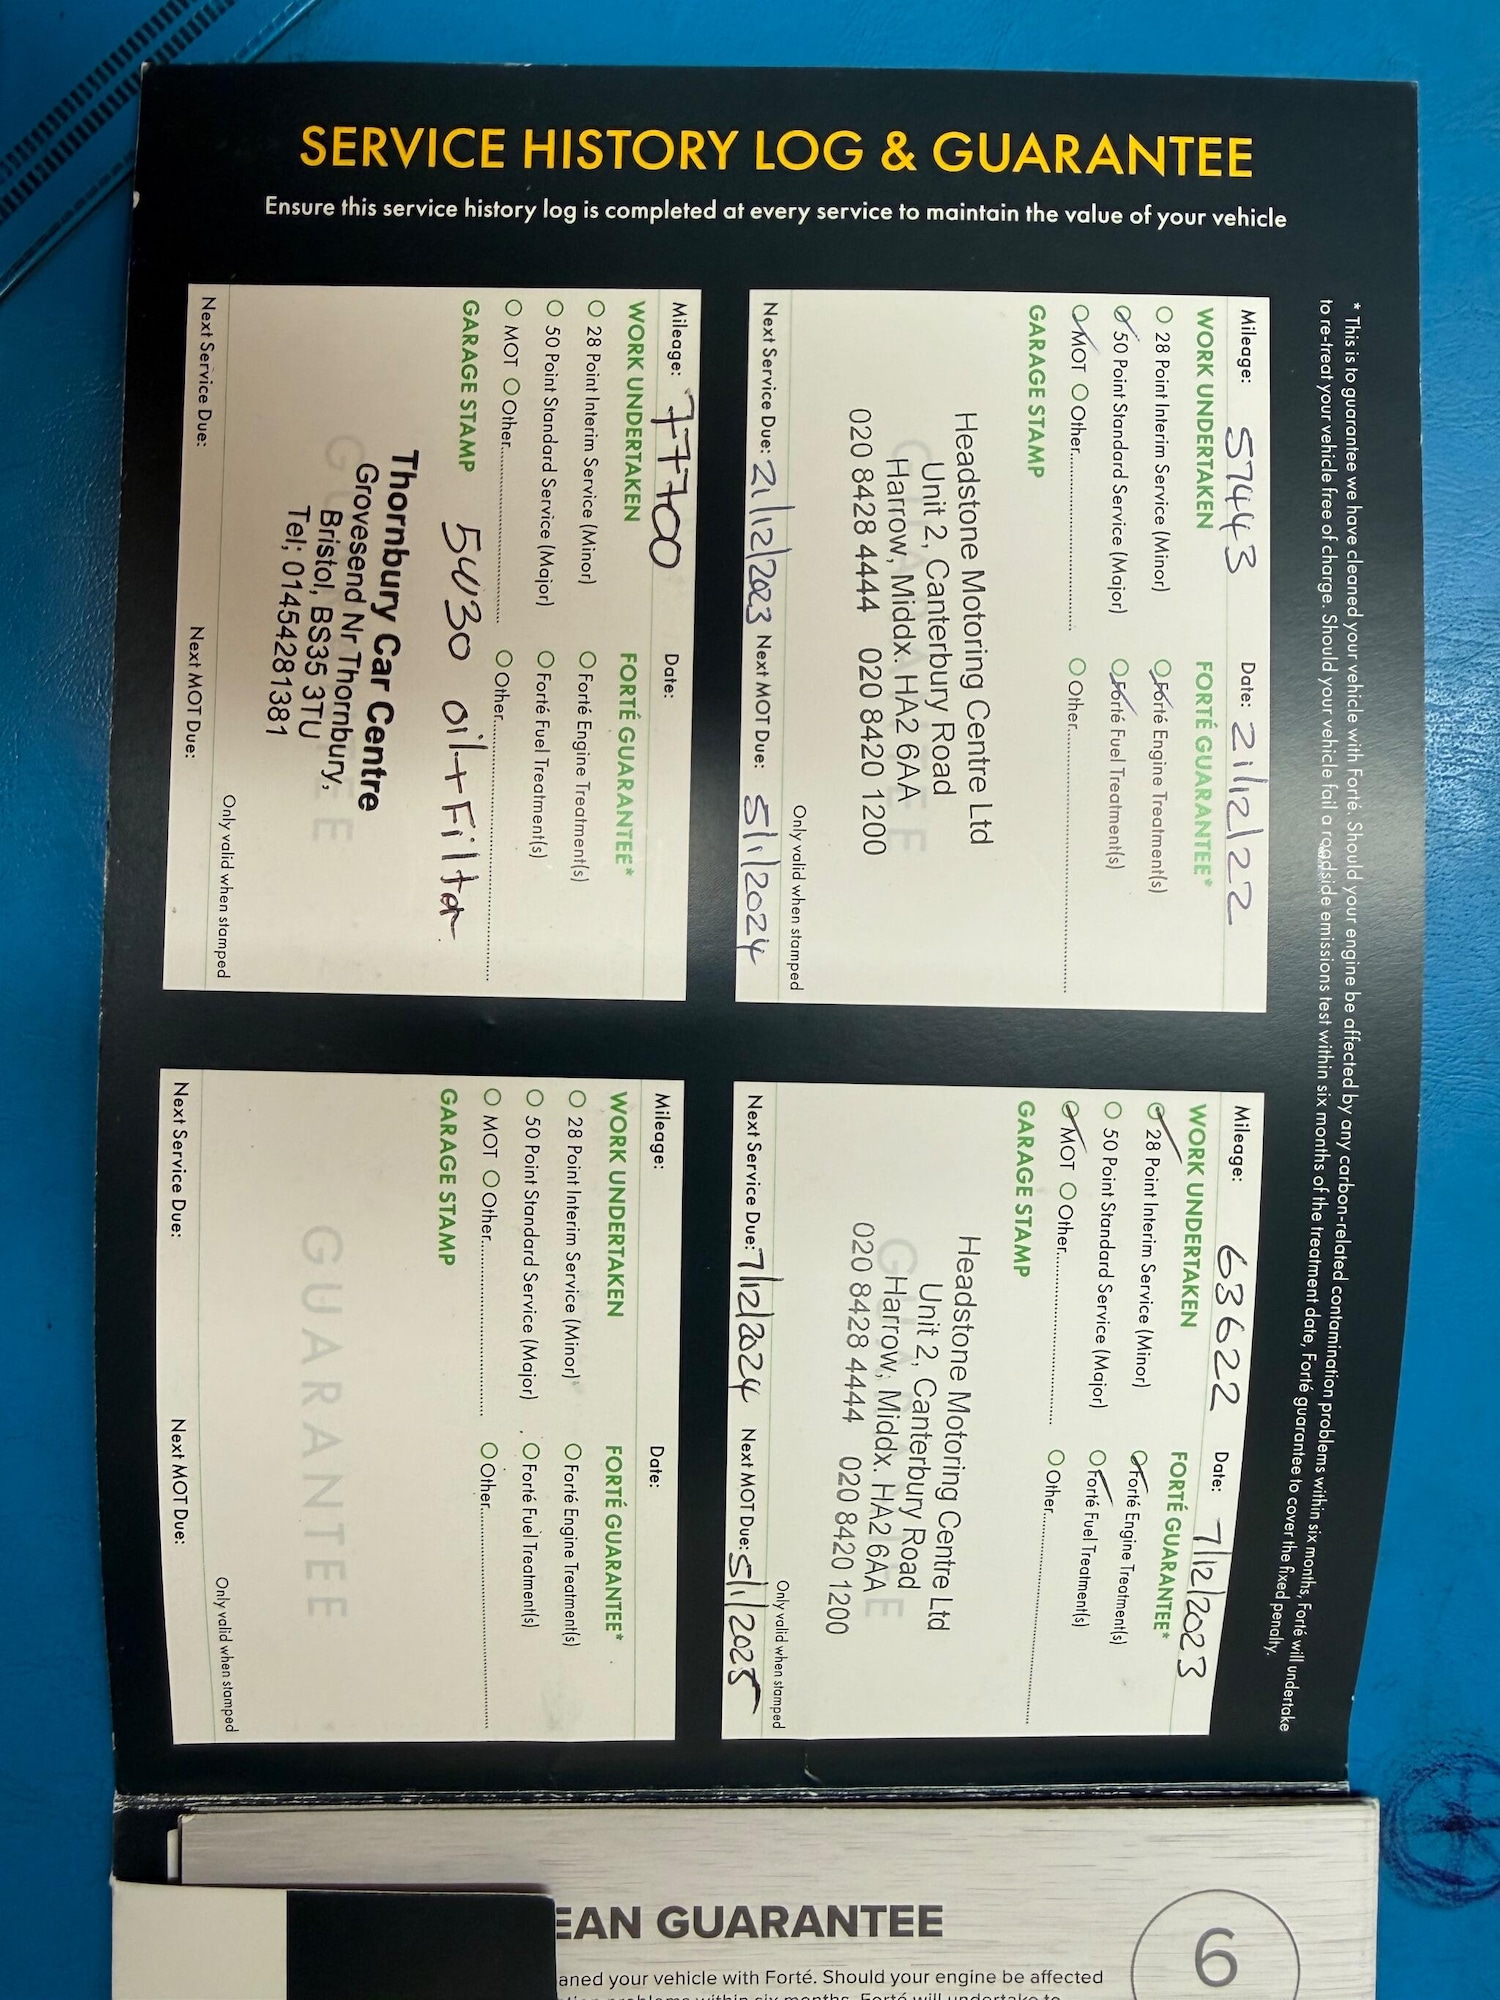 SERVICE HISTORY LOG & GUARANTEE
Ensure this service history log is completed at every service to maintain the value of your vehicle
* This is to guarantee we have cleaned your vehicle with Forté. Should your engine be affected by any carbon-related contamination problems within six months, Forté will undertake
to re-treat your vehicle free of charge. Should your vehicle fail a roadside emissions test within six months of the treatment date, Forté guarantee to cover the fixed penalty.
Mileage: 57443 Date: 21/12/22
WORK UNDERTAKEN FORTÉ GUARANTEE*
28 Point Interim Service (Minor) Forté Engine Treatment(s)
50 Point Standard Service (Major) Forté Fuel Treatment(s)
MOT Other Other
GARAGE STAMP
Headstone Motoring Centre Ltd
Unit 2, Canterbury Road
Harrow, Middx. HA2 6AA
020 8428 4444 020 8420 1200
GUARANTEE
Only valid when stamped
Next Service Due: 21/12/2023 Next MOT Due: 5/1/2024
Mileage: 63622 Date: 7/12/2023
WORK UNDERTAKEN FORTÉ GUARANTEE*
28 Point Interim Service (Minor) Forté Engine Treatment(s)
50 Point Standard Service (Major) Forté Fuel Treatment(s)
MOT Other Other
GARAGE STAMP
Headstone Motoring Centre Ltd
Unit 2, Canterbury Road
Harrow, Middx. HA2 6AA
020 8428 4444 020 8420 1200
GUARANTEE
Only valid when stamped
Next Service Due: 7/12/2024 Next MOT Due: 5/1/2025
Mileage: 77700 Date:
WORK UNDERTAKEN FORTÉ GUARANTEE*
28 Point Interim Service (Minor) Forté Engine Treatment(s)
50 Point Standard Service (Major) Forté Fuel Treatment(s)
MOT Other Other
GARAGE STAMP 5W30 oil + Filter
Thornbury Car Centre
Grovesend Nr Thornbury,
Bristol, BS35 3TU
Tel; 01454281381
GUARANTEE
Only valid when stamped
Next Service Due: Next MOT Due:
Mileage: Date:
WORK UNDERTAKEN FORTÉ GUARANTEE*
28 Point Interim Service (Minor) Forté Engine Treatment(s)
50 Point Standard Service (Major) Forté Fuel Treatment(s)
MOT Other Other
GARAGE STAMP
GUARANTEE
Only valid when stamped
Next Service Due: Next MOT Due:
EAN GUARANTEE
6
aned your vehicle with Forté. Should your engine be affected